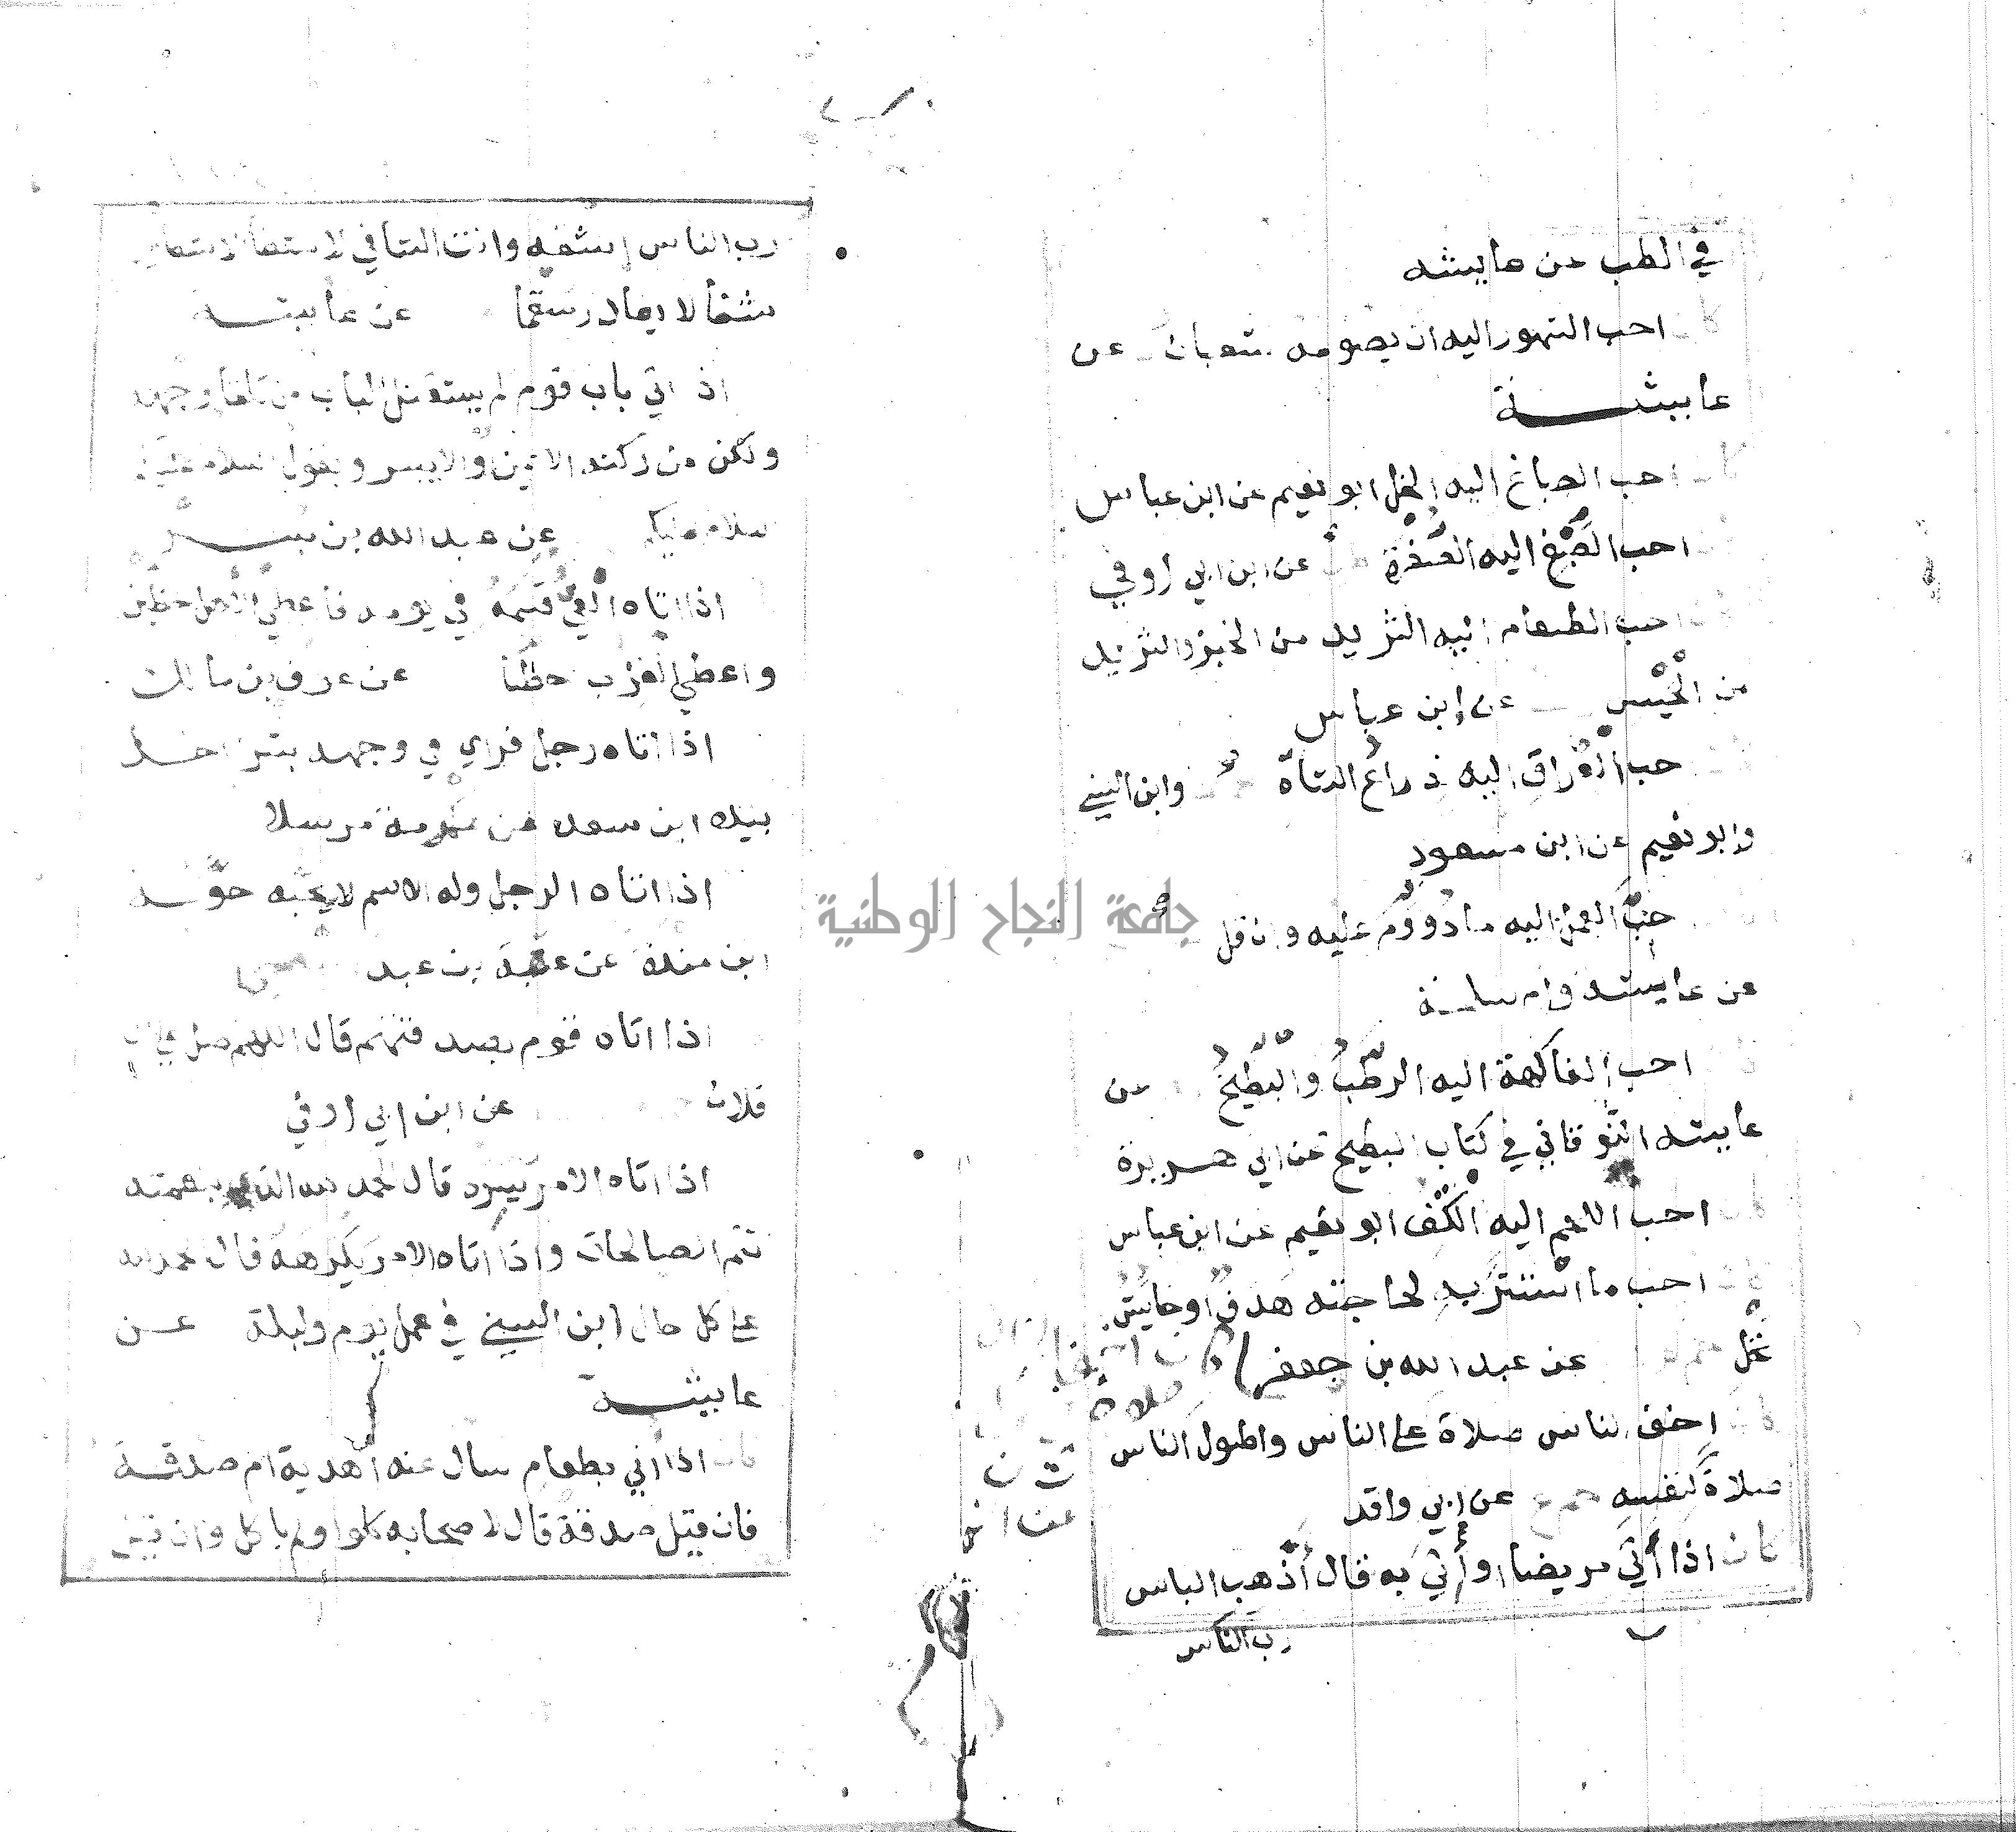 في الطب عن عايشه
احب الشهور اليه ان يصومه شعبان عن
عايشة
احب الصباغ اليه الخل ابو نعيم عن ابن عباس
احب الصبغ اليه الصفرة عن ابن ابي اوفي
احب الطعام اليه الثريد من الخبز والثريد
من الحيس عن ابن عباس
حب العراق اليه ذراع الشاة وابن السني
وابو نعيم عن ابن مسعود
حب العمل اليه ما دووم عليه وان قل
عن عايشه وام سلمة
احب الفاكهة اليه الرطب والبطيخ عن
عايشه النوقاني في كتاب البطيخ عن ابي هريرة
احب اللحم اليه الكتف ابو نعيم عن ابن عباس
احب ما استتر به لحاجته هدف او حايش
نخل عن عبد الله بن جعفر
صلاة
اخف الناس صلاة على الناس واطول الناس
صلاة لنفسه عن ابي واقد
كان اذا أتى مريضا او أتي به قال أذهب الباس
رب الناس
رب الناس إشفه وانت الشافي لا شفا الا شفا
شفا لا يغادر سقما عن عايشه
اذ اتي باب قوم لم يستقبل الباب من تلقا وجهه
ولكن من ركنه الايمن والايسر ويقول السلام عليكم
السلام عليكم عن عبد الله بن بسر
اذا اتاه الفي قسمه في يومه فاعطي الاهل حظين
واعطي العزب حظا عن عوف بن مالك
اذا اتاه رجل فراي في وجهه بشر اخذ
بيده ابن سعد عن عكرمة مرسلا
اذا اتاه الرجل وله الاسم لا يحبه حوله
ابن مندة عن عتبة بن عبد
اذا اتاه قوم بصدقتهم قال اللهم صل على ال
فلان عن ابن ابي اوفي
اذا اتاه الامر يسره قال الحمد لله الذي بنعمته
تتم الصالحات واذا اتاه الامر يكرهه قال الحمد لله
على كل حال ابن السني في عمل يوم وليلة عن
عايشه
كان اذا اتي بطعام سال عنه أهدية ام صدقة
فان قيل صدقة قال لاصحابه كلوا ولم ياكل وان قيل
جامعة النجاح الوطنية